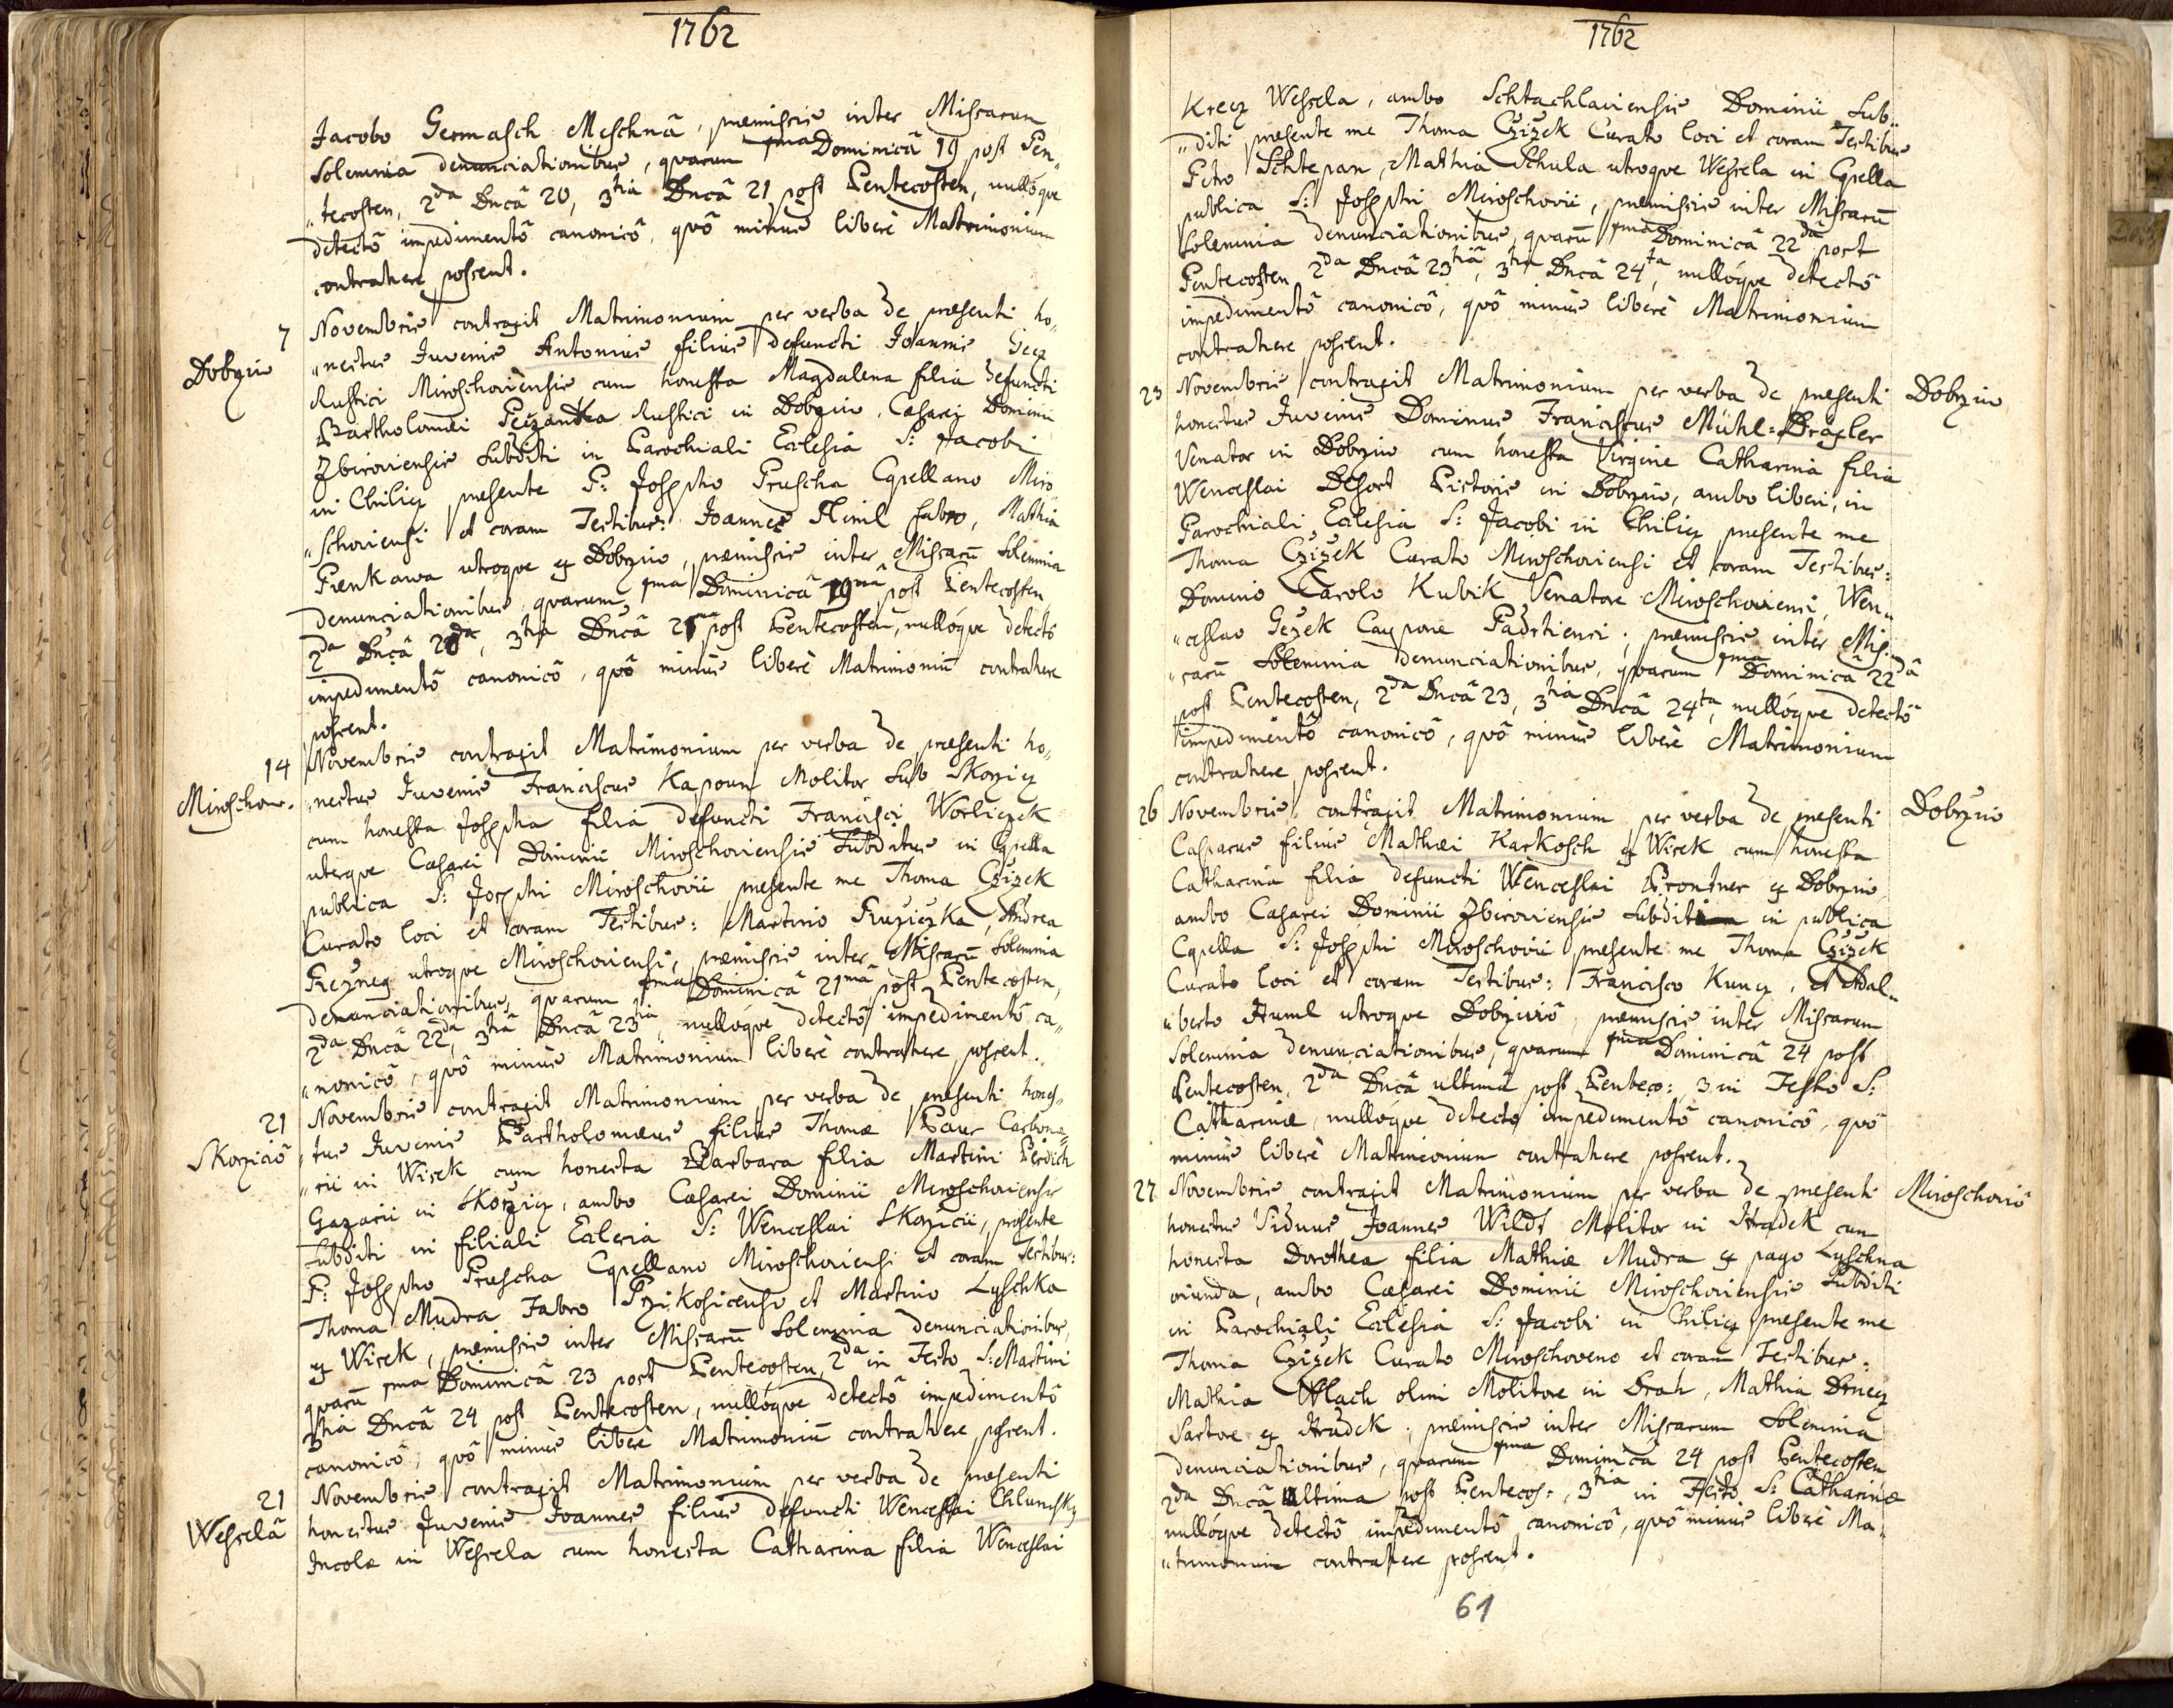 1762
Jacobo Germasch Meschnâ, præmissis inter Missarum
Solemnia denunciationibus, quarum pma Dominicâ 19 post Pen„
„tecosten, 2da Dncâ 20, 3tia Dncâ 21 post Pentecosten, nullóque
detectô impedimentô canonicô, quô minùs liberè Matrimonium
contrahere possent.
7 Novembris contraxit Matrimonium per verba de præsenti ho„
Dobrziw „nestus Juvenis Antonius filius defuncti Joannis
Rustici Miroschoviensis cum honesta Magdalena filia defuncti
Bartholomæi Rustici in Dobrziw, Cæsarei Dominii
Zbiroviensis Subditi in Parochiali Ecclesia S: Jacobi
in Chilicz præsente P: Josepho Pruscha Capellano Miro
„schoviensi et coram Testibus: Joannes Himl fabro, Mathia
Prenkawa utroque ex Dobrziw, præmissis inter Missarū Solemnia
denunciationibus, quarum pma Dominicâ 19nâ post Pentecosten
2da Dncâ 20da, 3tia Dncâ 21mâ post Pentecosten, nullóque detectô
impedimentô canonicô, quô minùs liberè Matrimoniū contrahere
possent.
14 Novembris contraxit Matrimonium per verba de præsenti ho„
Miroschow. „nestus Juvenis Franciscus Kapoun Molitor Sub Skorzicz
cum honesta Josepha filia defuncti Francisci Worliczek
uterque Cæsarei Dominii Miroschoviensis Subditus in Cpella
publica S: Josephi Miroschovii præsente me Thoma Czizek
Curato loci et coram Testibus: Martino Ruziczka, Andrea
Rezney utroque Miroschoviensi, præmissis inter Missarū Solemnia
denunciationibus, quarum pma Dominicâ 21mâ post Pentecosten,
2da Dncâ 22da, 3tiâ Dncâ 23tia, nullóque detectô impedimentô ca„
„nonicô, quô minùs Matrimonium liberè contrahere possent.
21 Novembris contraxit Matrimonium per verba de præsenti hones„
Skorziciô „tus Juvenis Bartholomæus filius Thomæ Paur Carbona„
„rii in Wisek cum honesta Barbara filia Martini Perdich
Gazarii in Skorzicz, ambo Cæsarei Dominii Miroschoviensis
Subditi in filiali Ecclesia S: Wenceslai Skorzicii, præsente
P: Josepho Pruscha Cpellano Miroschoviensi et coram Testibus:
Thoma Mudra Fabro Przikosicensi et Martino Lyschka
ex Wisek, præmissis inter Missarū Solemnia denunciationibus,
quarū pma Dominicâ 23 post Pentecosten, 2da in Festo S: Martini
3tia Dncâ 24 post Pentecosten, nullóque detectô impedimentô
canonicô, quô minùs liberè Matrimoniū contrahere possent.
21 Novembris contraxit Matrimonium per verba de præsenti
Wesselâ honestus Juvenis Joannes filius defuncti Wenceslai Chlumsky
Incolæ in Wessela cum honesta Catharina filia Wenceslai
1762
Krecz Wessela, ambo Schtachlaviensis Dominii Sub„
„diti præsente me Thoma Czizek Curato loci et coram Testibus
Petro Schtepan, Mathia Schula utroque Wessela in Cpella
publica S: Josephi Miroschovii, præmissis inter Missarū
Solemnia denunciationibus, quarū pma Dominicâ 22da post
Pentecosten 2da Dncâ 23tiâ, 3tia Dncâ 24ta, nullóque detectô
impedimentô canonicô, quô minùs liberè Matrimonium
contrahere possent.
23 Novembris contraxit Matrimonium per verba de præsenti Dobrziw
honestus Juvenis Dominus Franciscus Mühl=Draxler
Venator in Dobrziw cum honesta Virgine Catharina filia
Wenceslai Desort Pictoris in Dobrziw, ambo liberi, in
Parochiali Ecclesia S: Jacobi in Chilicz præsente me
Thoma Czizek Curato Miroschoviensi et coram Testibus:
Domino Carolo Kubik Venatore Miroschoviensi, Wen„
„ceslao Gezek Caupone Padrtiensi; præmissis inter Mis„
„sarū Solemnia denunciationibus, quarum pma Dominicâ 22dâ
post Pentecosten, 2da Dncâ 23, 3tia Dncâ 24ta, nullóque detectô
impedimentô canonicô, quô minùs liberè Matrimonium
contrahere possent.
26 Novembris contraxit Matrimonium per verba de præsenti Dobrziw
Casparus filius Mathæi Karkosch ex Wisek cum honesta
Catharina filia defuncti Wenceslai Prontner ex Dobrziw
ambo Cæsarei Dominii Zbiroviensis Subditi in publica
Cpella S: Josephi Miroschovii præsente me Thoma Czizek
Curato loci et coram Testibus: Francisco Kuncz, et Adal„
„berto Huml utroque Dobrziviô, præmissis inter Missarum
Solemnia denunciationibus, quarum pma Dominicâ 24 post
Pentecosten, 2da Dncâ ultimâ post Penteco: 3 in Festo S:
Catharinæ, nullóque detecto impedimentô canonicô, quô
minùs liberè Matrimonium contrahere possent.
27 Novembris contraxit Matrimonium per verba de præsenti Miroschoviô
honestus Viduus Joannes Wildt Molitor in Hradek cum
honesta Dorothea filia Mathiæ Mudra ex pago Lyschna
oriunda, ambo Cæsarei Dominii Miroschoviensis Subditi
in Parochiali Ecclesia S: Jacobi in Chilicz præsente me
Thoma Czizek Curato Miroschoveno et coram Testibus:
Mathia Wlach olim Molitore in Drah, Mathia
Sartore ex Hradek; præmissis inter Missarum Solemnia
denunciationibus, quarum pma Dominicâ 24 post Pentecosten
2da Dncâ Ultima post Pentecos:, 3tia in Festo S: Catharinæ
nullóque detectô impedimentô canonicô, quô minùs liberè Ma„
„trimonium contrahere possent.
61